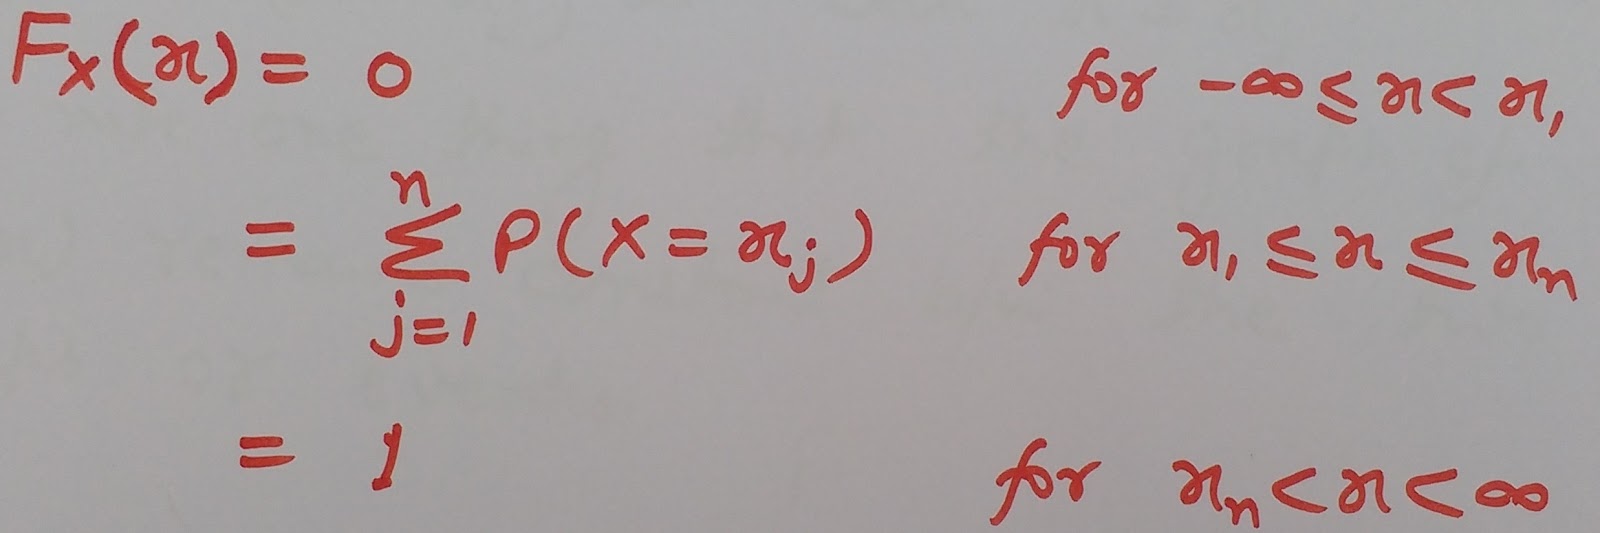 Fx(x) = 0 for -∞ ≤ x < x₁
= ∑ⁿⱼ₌₁ P(X = xⱼ) for x₁ ≤ x ≤ xₙ
= 1 for xₙ < x < ∞